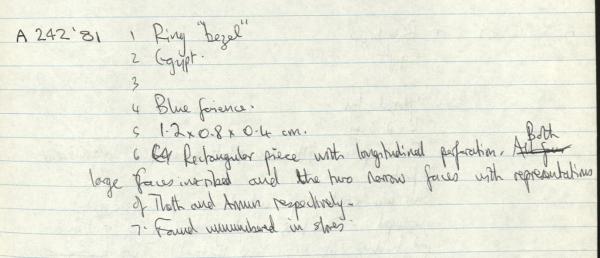 A 242'81 1 Ring "bezel"
2 Egypt.
3
4 Blue faience.
5 1.2 x 0.8 x 0.4 cm.
6 Rectangular piece with longitudinal perforation. Both
large faces inscribed and the two narrow faces with representations
of Thoth and Amun respectively.
7. Found unnumbered in stores.